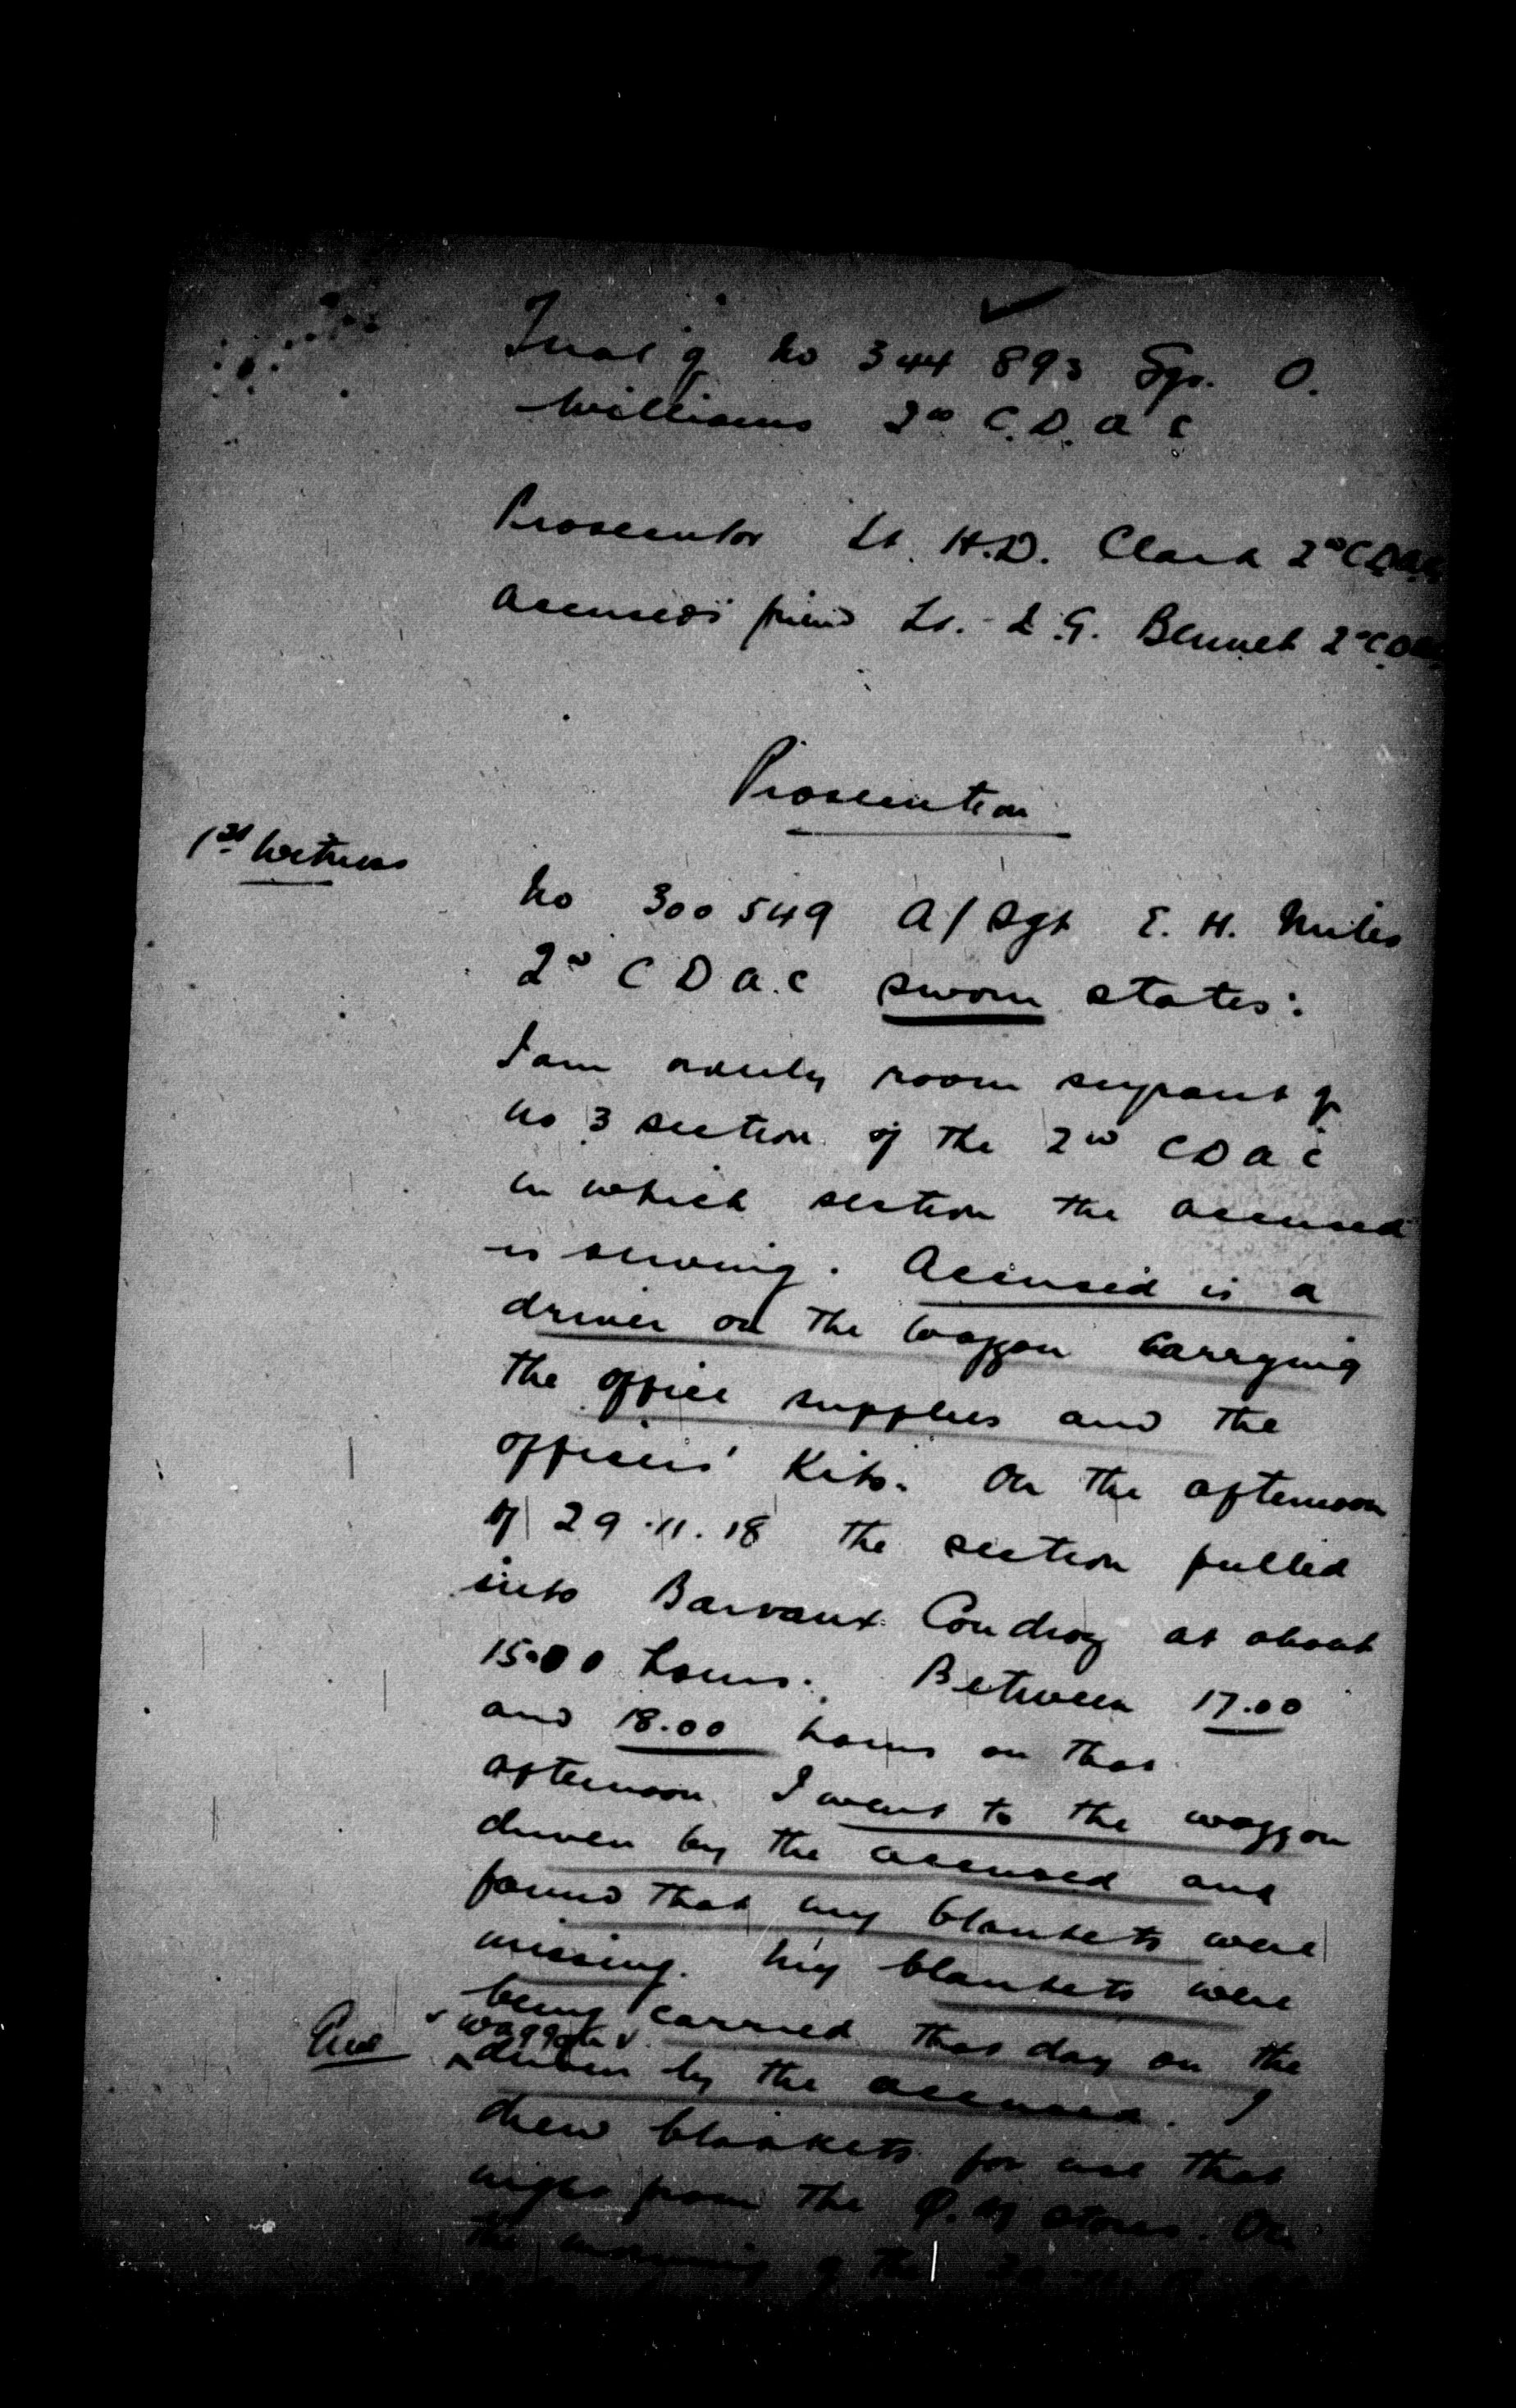 Trial of No 344893 Spr. O.
Williams 2nd C.D.A.C
Prosecutor Lt. H.D. Clark 2nd C.D.A.C.
Accused's friend Lt. L.G. Bennet 2nd C.D.A.C.
Prosecution
1st Witness
No 300549 A/Sgt E. H. Miles
2nd C D A.C sworn states:
I am orderly room sergeant of
No 3 section of the 2nd C D A C
in which section the accused
is serving. Accused is a
driver on the waggon carrying
the office supplies and the
officers' Kits. On the afternoon
of 29.11.18 the section pulled
into Barvaux Condroz at about
15.00 hours. Between 17.00
and 18.00 hours on that
afternoon I went to the waggon
driven by the accused and
found that my blankets were
missing. My blankets were
being carried that day on the
waggon
driven by the accused. I
drew blankets for use that
night from the Q.M stores. On
the morning of the 30.11.18